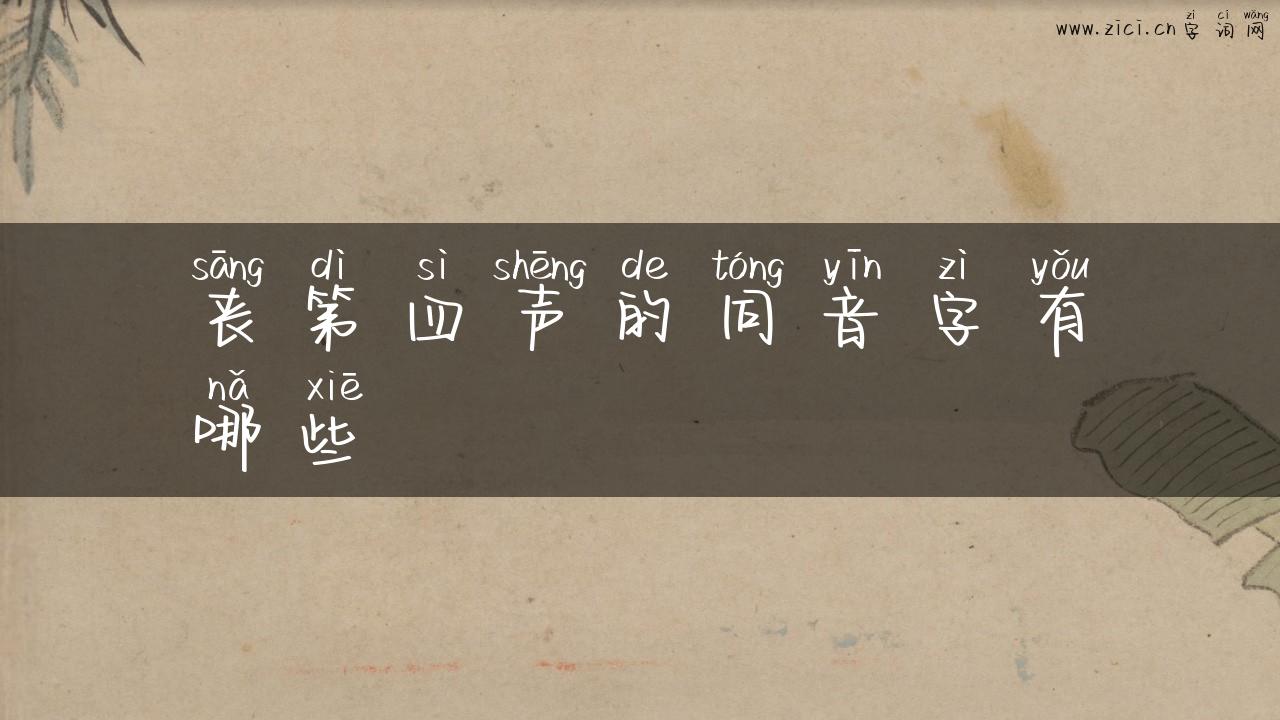 zì cí wǎng
www.zici.cn 字词网
sāng dì sì shēng de tóng yīn zì yǒu
丧第四声的同音字有
nǎ xiē
哪些